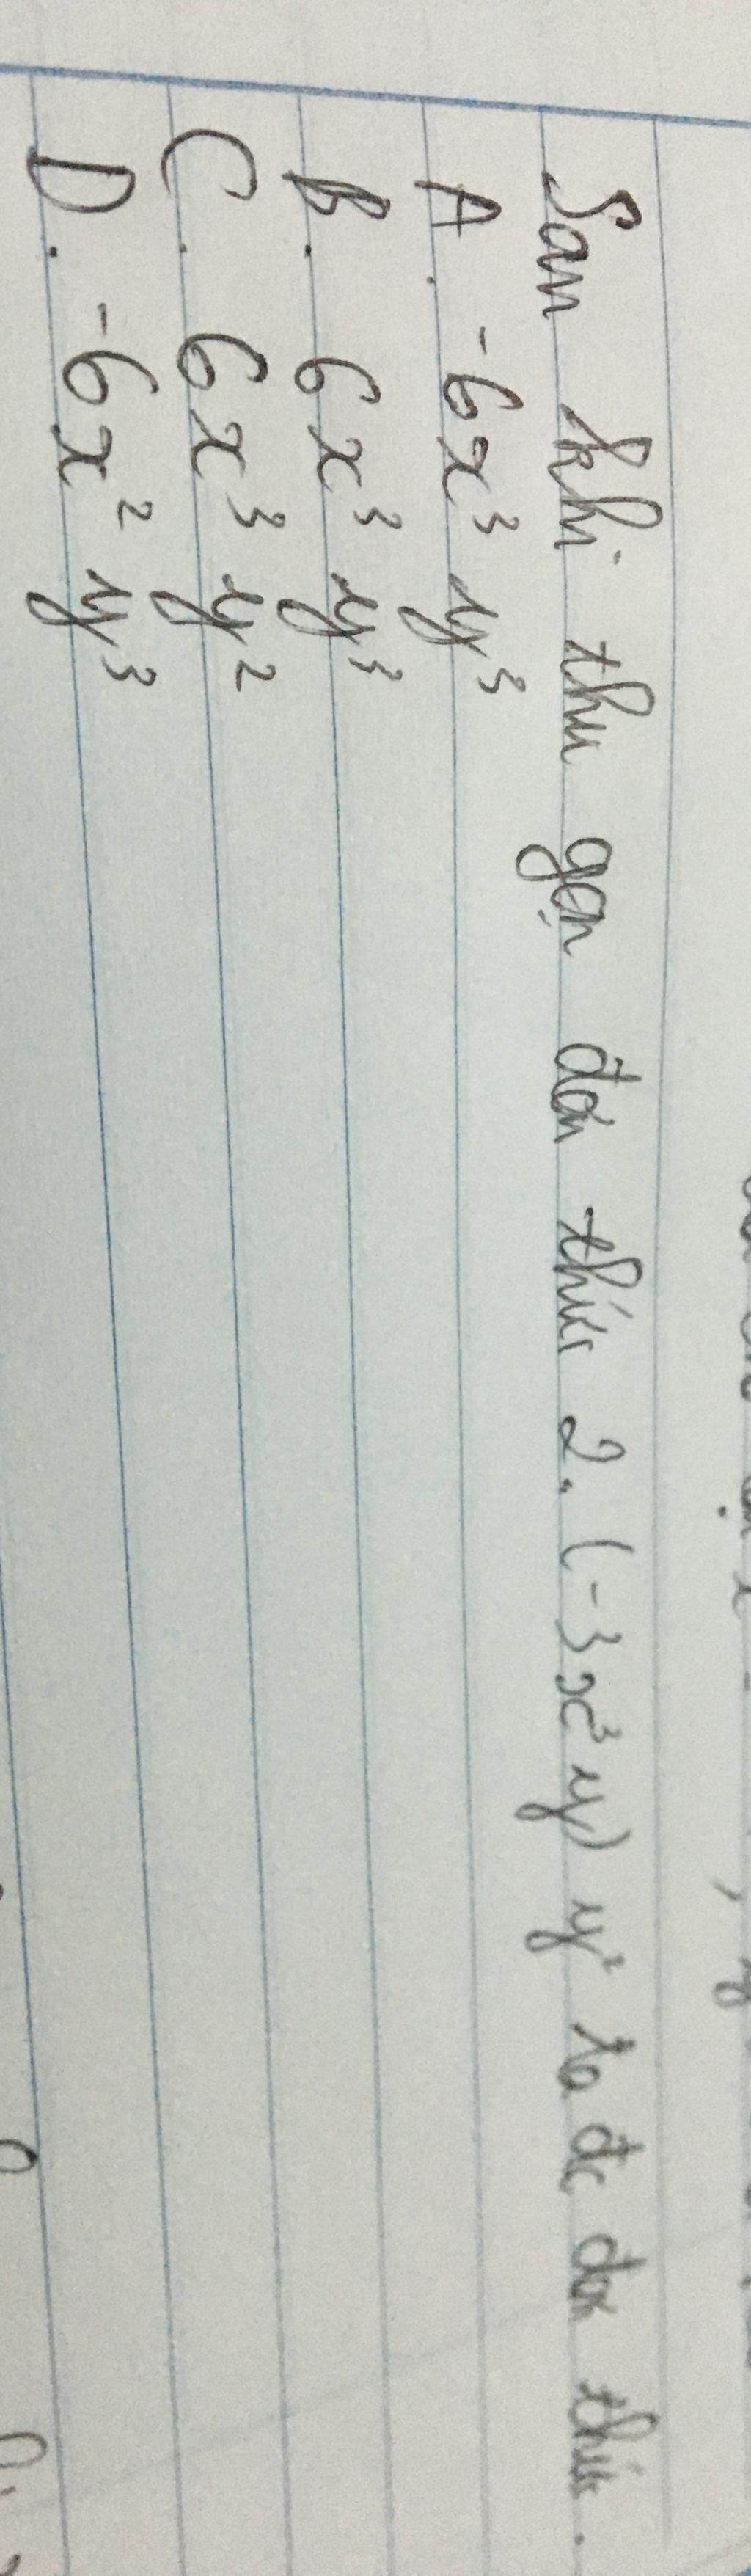 Sau khi thu gọn đơn thức 2. (-3x³y) y² ta đc đơn thức.
A. -6x³y³
B. 6x³y³
C. 6x³y²
D. -6x²y³